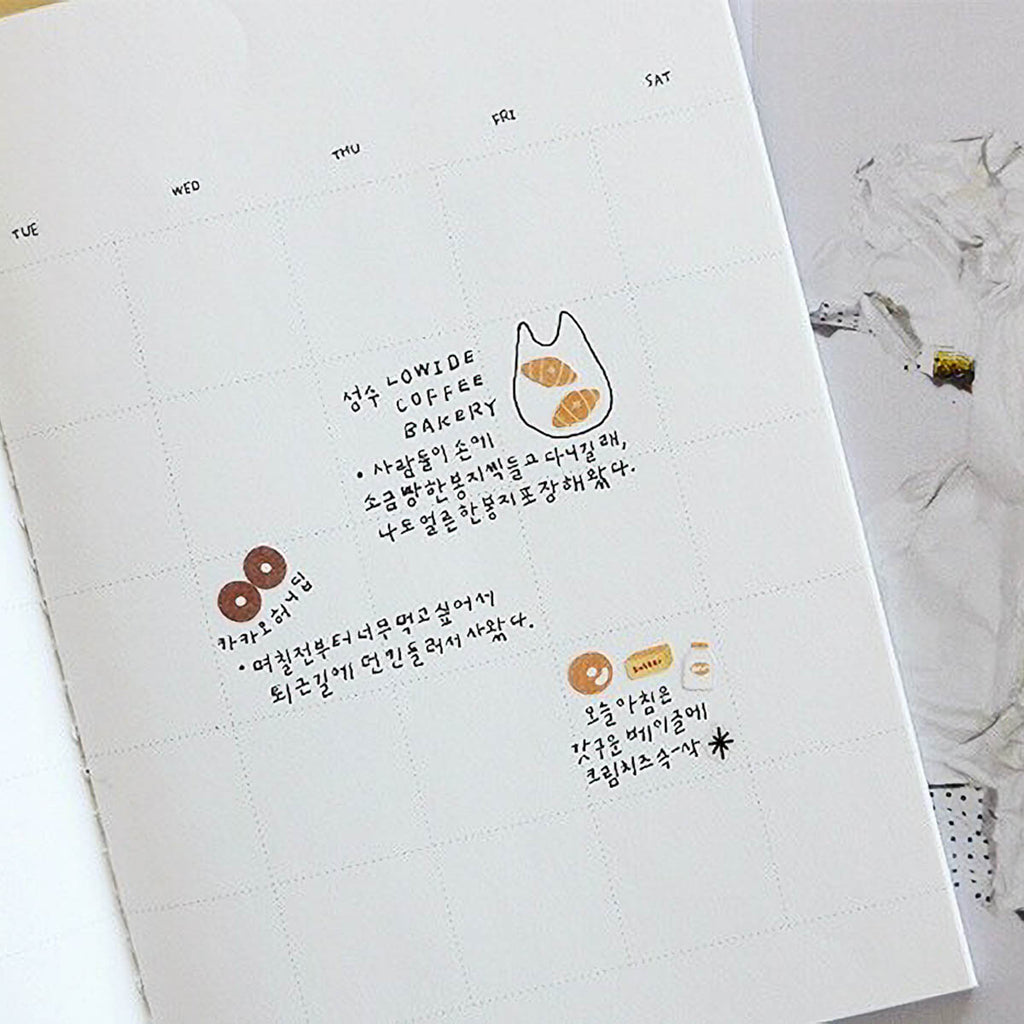 TUE
WED
THU
FRI
SAT
성수 LOWIDE
COFFEE
BAKERY
• 사람들이 손에
소금빵한봉지씩들고다니길래,
나도얼른한봉지포장해왔다.
카카오허니딥
• 며칠전부터너무먹고싶어서
퇴근길에 던킨들러서사왔다.
butter
오늘아침은
갓구운베이글에
크림치즈슥-삭